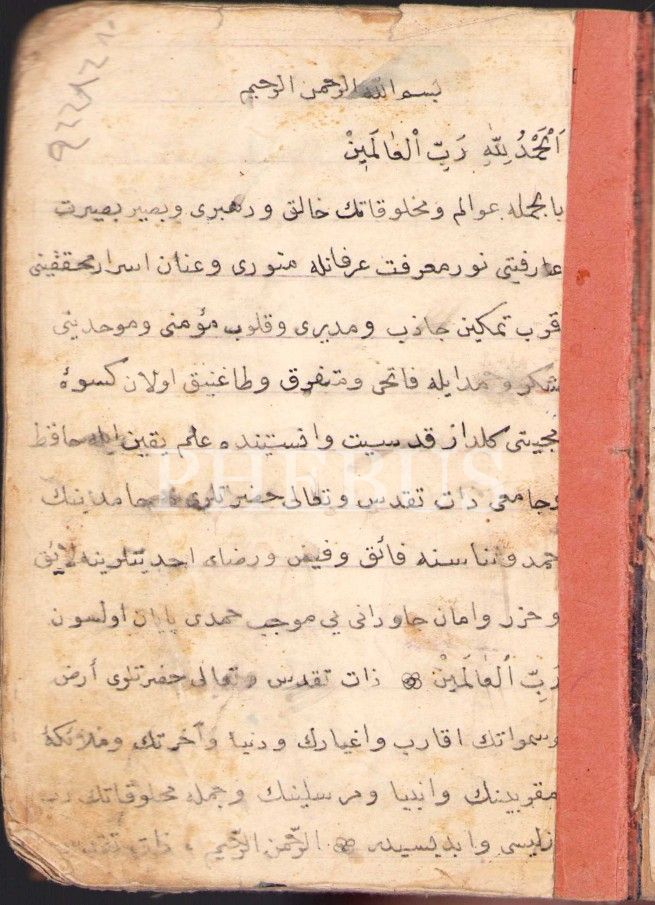 بسم الله الرحمن الرحيم
اَلْحَمْدُ لِلّٰهِ رَبِّ الْعٰالَمِيْنْ
بالجمله عوالم ومخلوقاتك خالق و رهبرى وبصير بصيرت
عارفيتى نور معرفت عرفانله منورى وعنان اسرار محققينى
قرب تمكين جاذب ومديرى وقلوب مؤمنى وموحدينى
شكر وحمد ايله فاتحى ومتفرق وطاغنيق اولان كسوۀ
كلدار قدسيت وانستينده علم يقين ايله حافظ
وجامعى ذات تقدس وتعالى حضرتلرى حامدينك
حمد و ثناسنه فائق وفيض ورضاى احديتلرينه لايق
و حزر وامان جاودانى بى موجب حمدى پايان اولسون
رَبِّ الْعٰالَمِيْنْ ذات تقدس وتعالى حضرتلرى أرض
وسمواتك اقارب واغيارك ودنيا وآخرتك وملائكۀ
مقربينك وانبيا ومرسلينك وجمله مخلوقاتك رب
الرّحمن الرّحيم ، ذات تقدس
PHEBUS